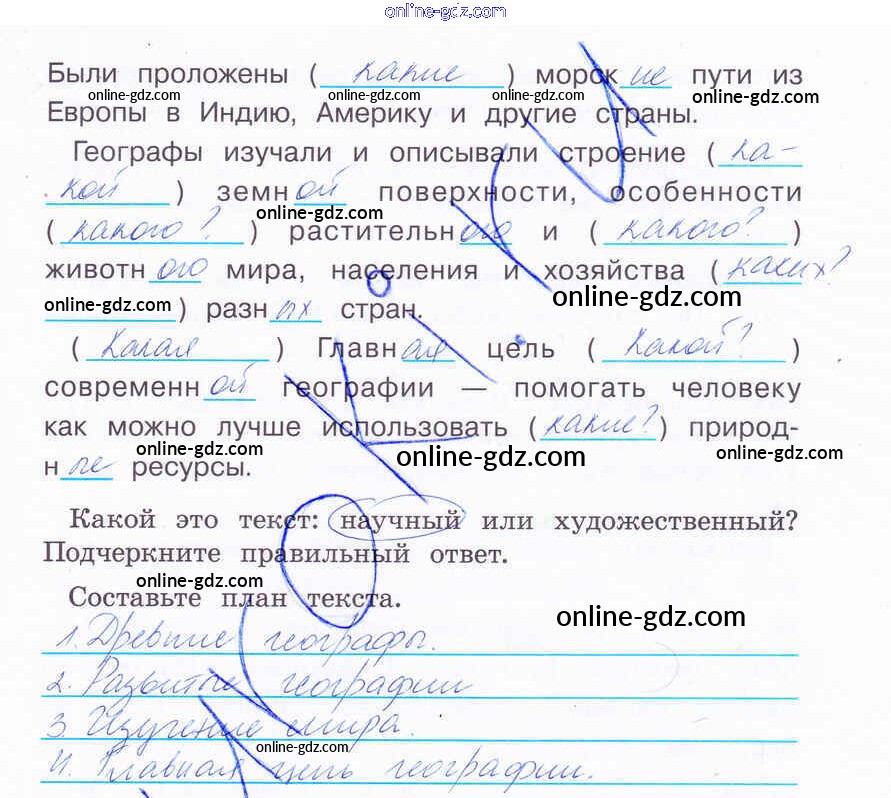 online-gdz.com
Были проложены ( какие ) морск ие пути из
online-gdz.com online-gdz.com online-gdz.com online-gdz.com
Европы в Индию, Америку и другие страны.
Географы изучали и описывали строение ( ка-
кой ) земн ой поверхности, особенности
online-gdz.com
( какого? ) растительн ого и ( какого? )
животн ого мира, населения и хозяйства ( каких?
online-gdz.com ) разн ых стран. online-gdz.com
( Какая ) Главн ая цель ( Какой? )
современн ой географии — помогать человеку
как можно лучше использовать ( какие? ) природ-
online-gdz.com online-gdz.com online-gdz.com
н ые ресурсы.
Какой это текст: научный или художественный?
Подчеркните правильный ответ.
online-gdz.com
Составьте план текста.
online-gdz.com
1. Древние географы.
2. Развитие географии
3. Изучение мира.
online-gdz.com
4. Главная цель географии.